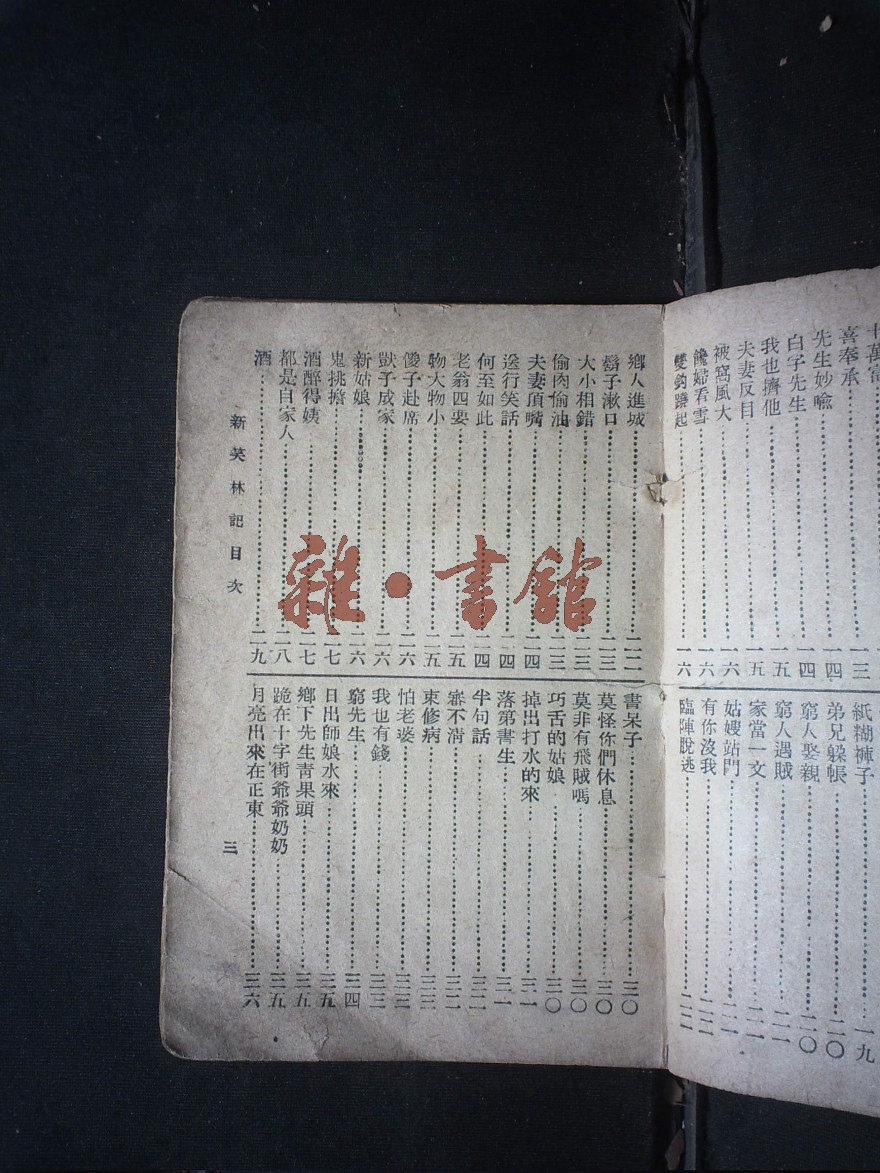 喜奉承⋯⋯一三
先生妙喻⋯⋯一四
白字先生⋯⋯一四
我也擠他⋯⋯一五
夫妻反目⋯⋯一五
被窩風大⋯⋯一六
饞婦看雪⋯⋯一六
雙鈎蹺起⋯⋯一六
紙糊褲子⋯⋯一九
弟兄躲帳⋯⋯二〇
窮人娶親⋯⋯二〇
窮人遇賊⋯⋯二一
家當一文⋯⋯二一
姑嫂站門⋯⋯二一
有你沒我⋯⋯二二
臨陣脫逃⋯⋯二二
鄉人進城⋯⋯二二
鬍子漱口⋯⋯二三
大小相錯⋯⋯二三
偷肉偷油⋯⋯二三
夫妻頂嘴⋯⋯二四
送行笑話⋯⋯二四
何至如此⋯⋯二四
老翁四要⋯⋯二五
物大物小⋯⋯二五
傻子赴席⋯⋯二六
獃子成家⋯⋯二六
新姑娘⋯⋯二六
鬼挑擔⋯⋯二七
酒醉得姨⋯⋯二七
都是自家人⋯⋯二八
酒⋯⋯二九
書呆子⋯⋯三〇
莫怪你們休息⋯⋯三〇
莫非有飛賊嗎⋯⋯三〇
巧舌的姑娘⋯⋯三〇
掉出打水的來⋯⋯三一
落第書生⋯⋯三一
半句話⋯⋯三二
審不消⋯⋯三二
束修病⋯⋯三三
怕老婆⋯⋯三三
我也有錢⋯⋯三三
窮先生⋯⋯三四
日出師娘水來⋯⋯三五
鄉下先生青果頭⋯⋯三五
跪在十字街爺爺奶奶⋯⋯三五
月亮出來在正東⋯⋯三六
新笑林記目次
三
雜·書館